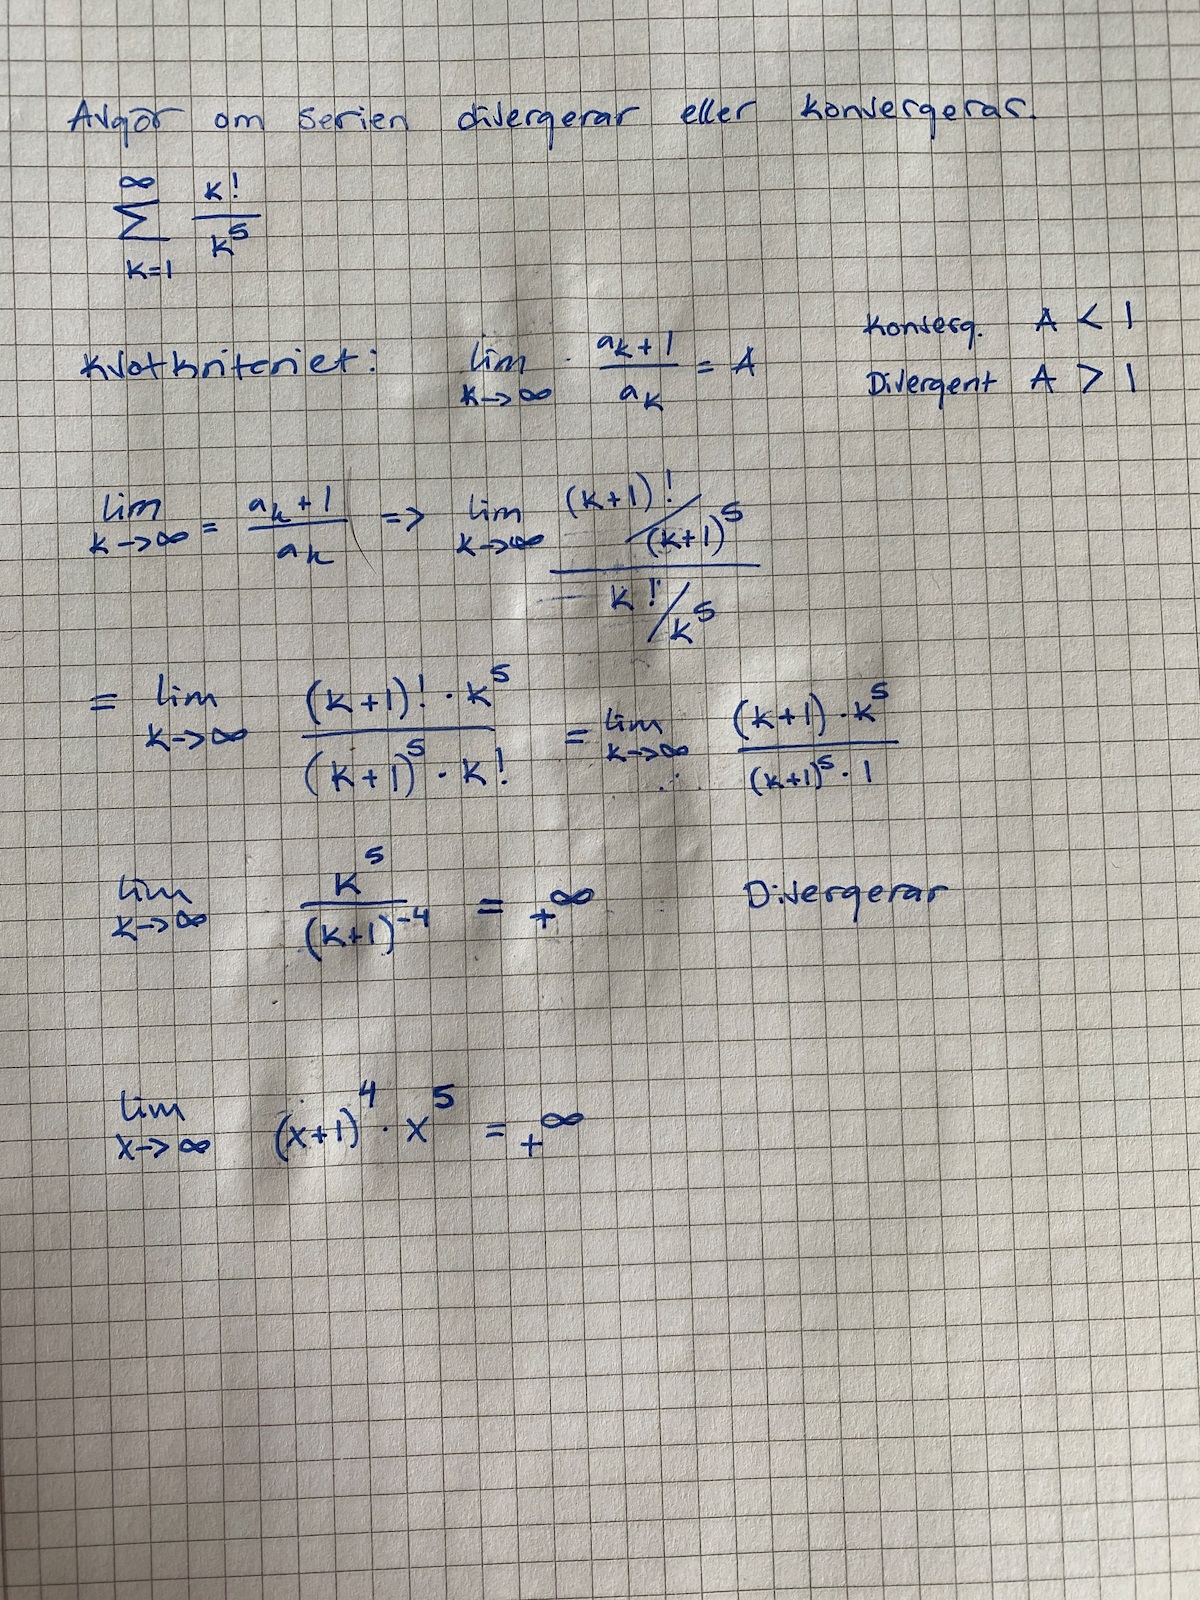 Avgör om serien divergerar eller konvergeras.
∞
∑ k!/k^5
k=1
Kvotkriteriet: lim k→∞ (a_k+1)/(a_k) = A Konverg. A < 1
Divergent A > 1
lim k→∞ = (a_k+1)/(a_k) => lim k→∞ ((k+1)!/(k+1)^5)/(k!/k^5)
= lim k→∞ ((k+1)! · k^5)/((k+1)^5 · k!) = lim k→∞ ((k+1) · k^5)/((k+1)^5 · 1)
lim k→∞ k^5/(k+1)^-4 = +∞ Divergerar
lim x→∞ (x+1)^4 · x^5 = +∞